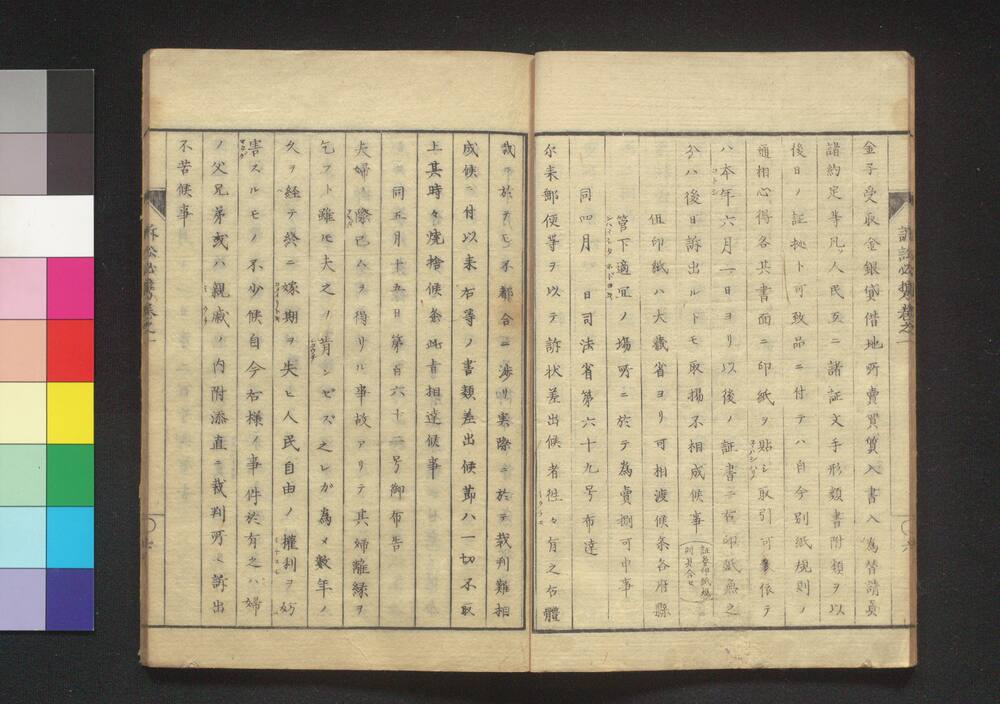 金子受取金銀貸借地所賣買質入書入為替請負
諸約定等凡ソ人民互ニ諸証文手形類書附類ヲ以
後日ノ証拠ト可致品ニ付テハ自今別紙規則ノ
通相心得各其書面ニ印紙ヲ貼シ取引可致依テ
ハ本年六月一日ヨリ以後ノ証書ニ右印紙無之
分ハ後日訴出ルトモ取揚不相成候事
但印紙ハ大藏省ヨリ可相渡候条各府縣
管下適冝ノ場所ニ於テ為賣捌可申事
同四月 日司法省第六十九号布達
尓来郵便等ヲ以テ訴状差出候者徃々有之右體
裁ニ於テモ不都合ニ渉リ実際ニ於テ裁判難相
成候ニ付以来右等ノ書類差出候節ハ一切不取
上其時々燒捨候条此旨相達候事
同五月十五日第百六十二号御布告
夫婦ノ際已ムヲ得サル事故アリテ其婦離縁ヲ
乞フト雖モ夫之ヲ肯ンセズ之レガ為メ數年ノ
久ヲ経テ終ニ嫁期ヲ失ヒ人民自由ノ權利ヲ妨
害スルモノ不少候自今右様ノ事件於有之ハ婦
ノ父兄弟或ハ親戚ノ内附添直ニ裁判所ヘ訴出
不苦候事
訴訟必携巻之一
六